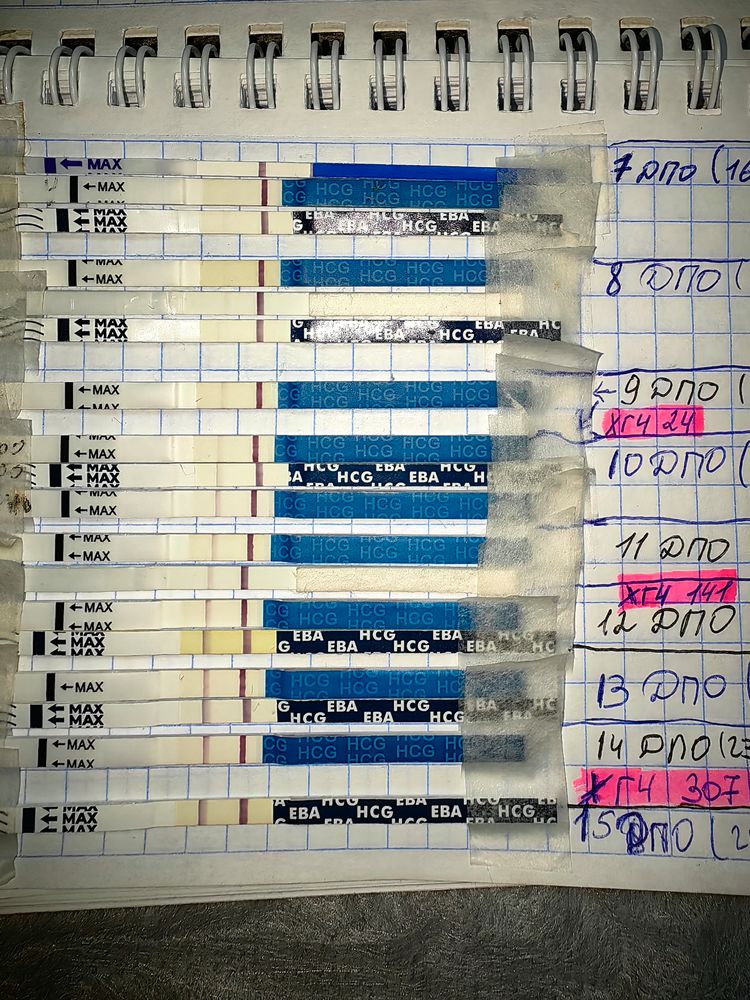 MAX
7 ДПО (16
MAX
MAX
MAX
EBA HCG EBA
HCG EBA HCG
MAX
HCG HCG HCG
8 ДПО (
MAX
MAX
EBA HC
HCG EBA HCG
MAX
HCG HCG HCG
9 ДПО (
ХГЧ 24
MAX
HCG HCG HCG
10 ДПО (
MAX
MAX
HCG EBA HCG
HCG EBA HCG
MAX
HCG HCG HCG
MAX
HCG HCG HCG
11 ДПО
ХГЧ 141
MAX
HCG HCG HCG
12 ДПО
MAX
MAX
EBA HCG EBA
EBA HCG EBA
MAX
HCG HCG HCG
13 ДПО
MAX
MAX
EBA HCG EBA
HCG EBA HCG
MAX
HCG HCG HCG
14 ДПО (23
ХГЧ 307
MAX
MAX
EBA HCG EBA HCG
15 ДПО (2